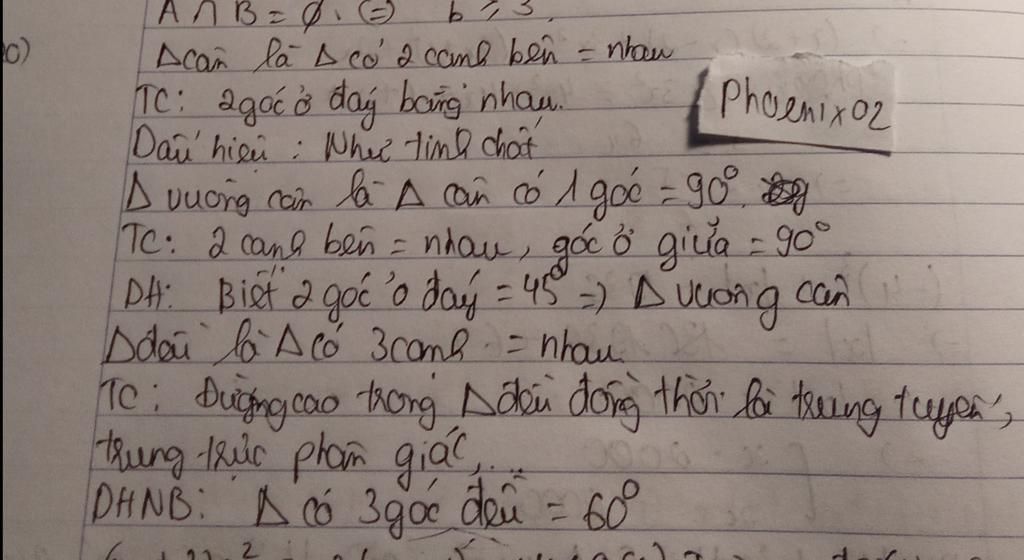 A ∩ B = ∅. (=) b ≥ 3.
c)
Δcân là Δ có 2 cạnh bên = nhau
TC: 2 góc ở đáy bằng nhau.
Phoenix02
Dấu hiệu : Như tính chất
Δ vuông cân là Δ cân có 1 góc = 90°.
TC: 2 cạnh bên = nhau, góc ở giữa = 90°
DH: Biết 2 góc ở đáy = 45° => Δ vuông cân
Δ đều là Δ có 3 cạnh = nhau
TC: Đường cao trong Δ đều đồng thời là trung tuyến,
trung trực phân giác,...
DHNB: Δ có 3 góc đều = 60°